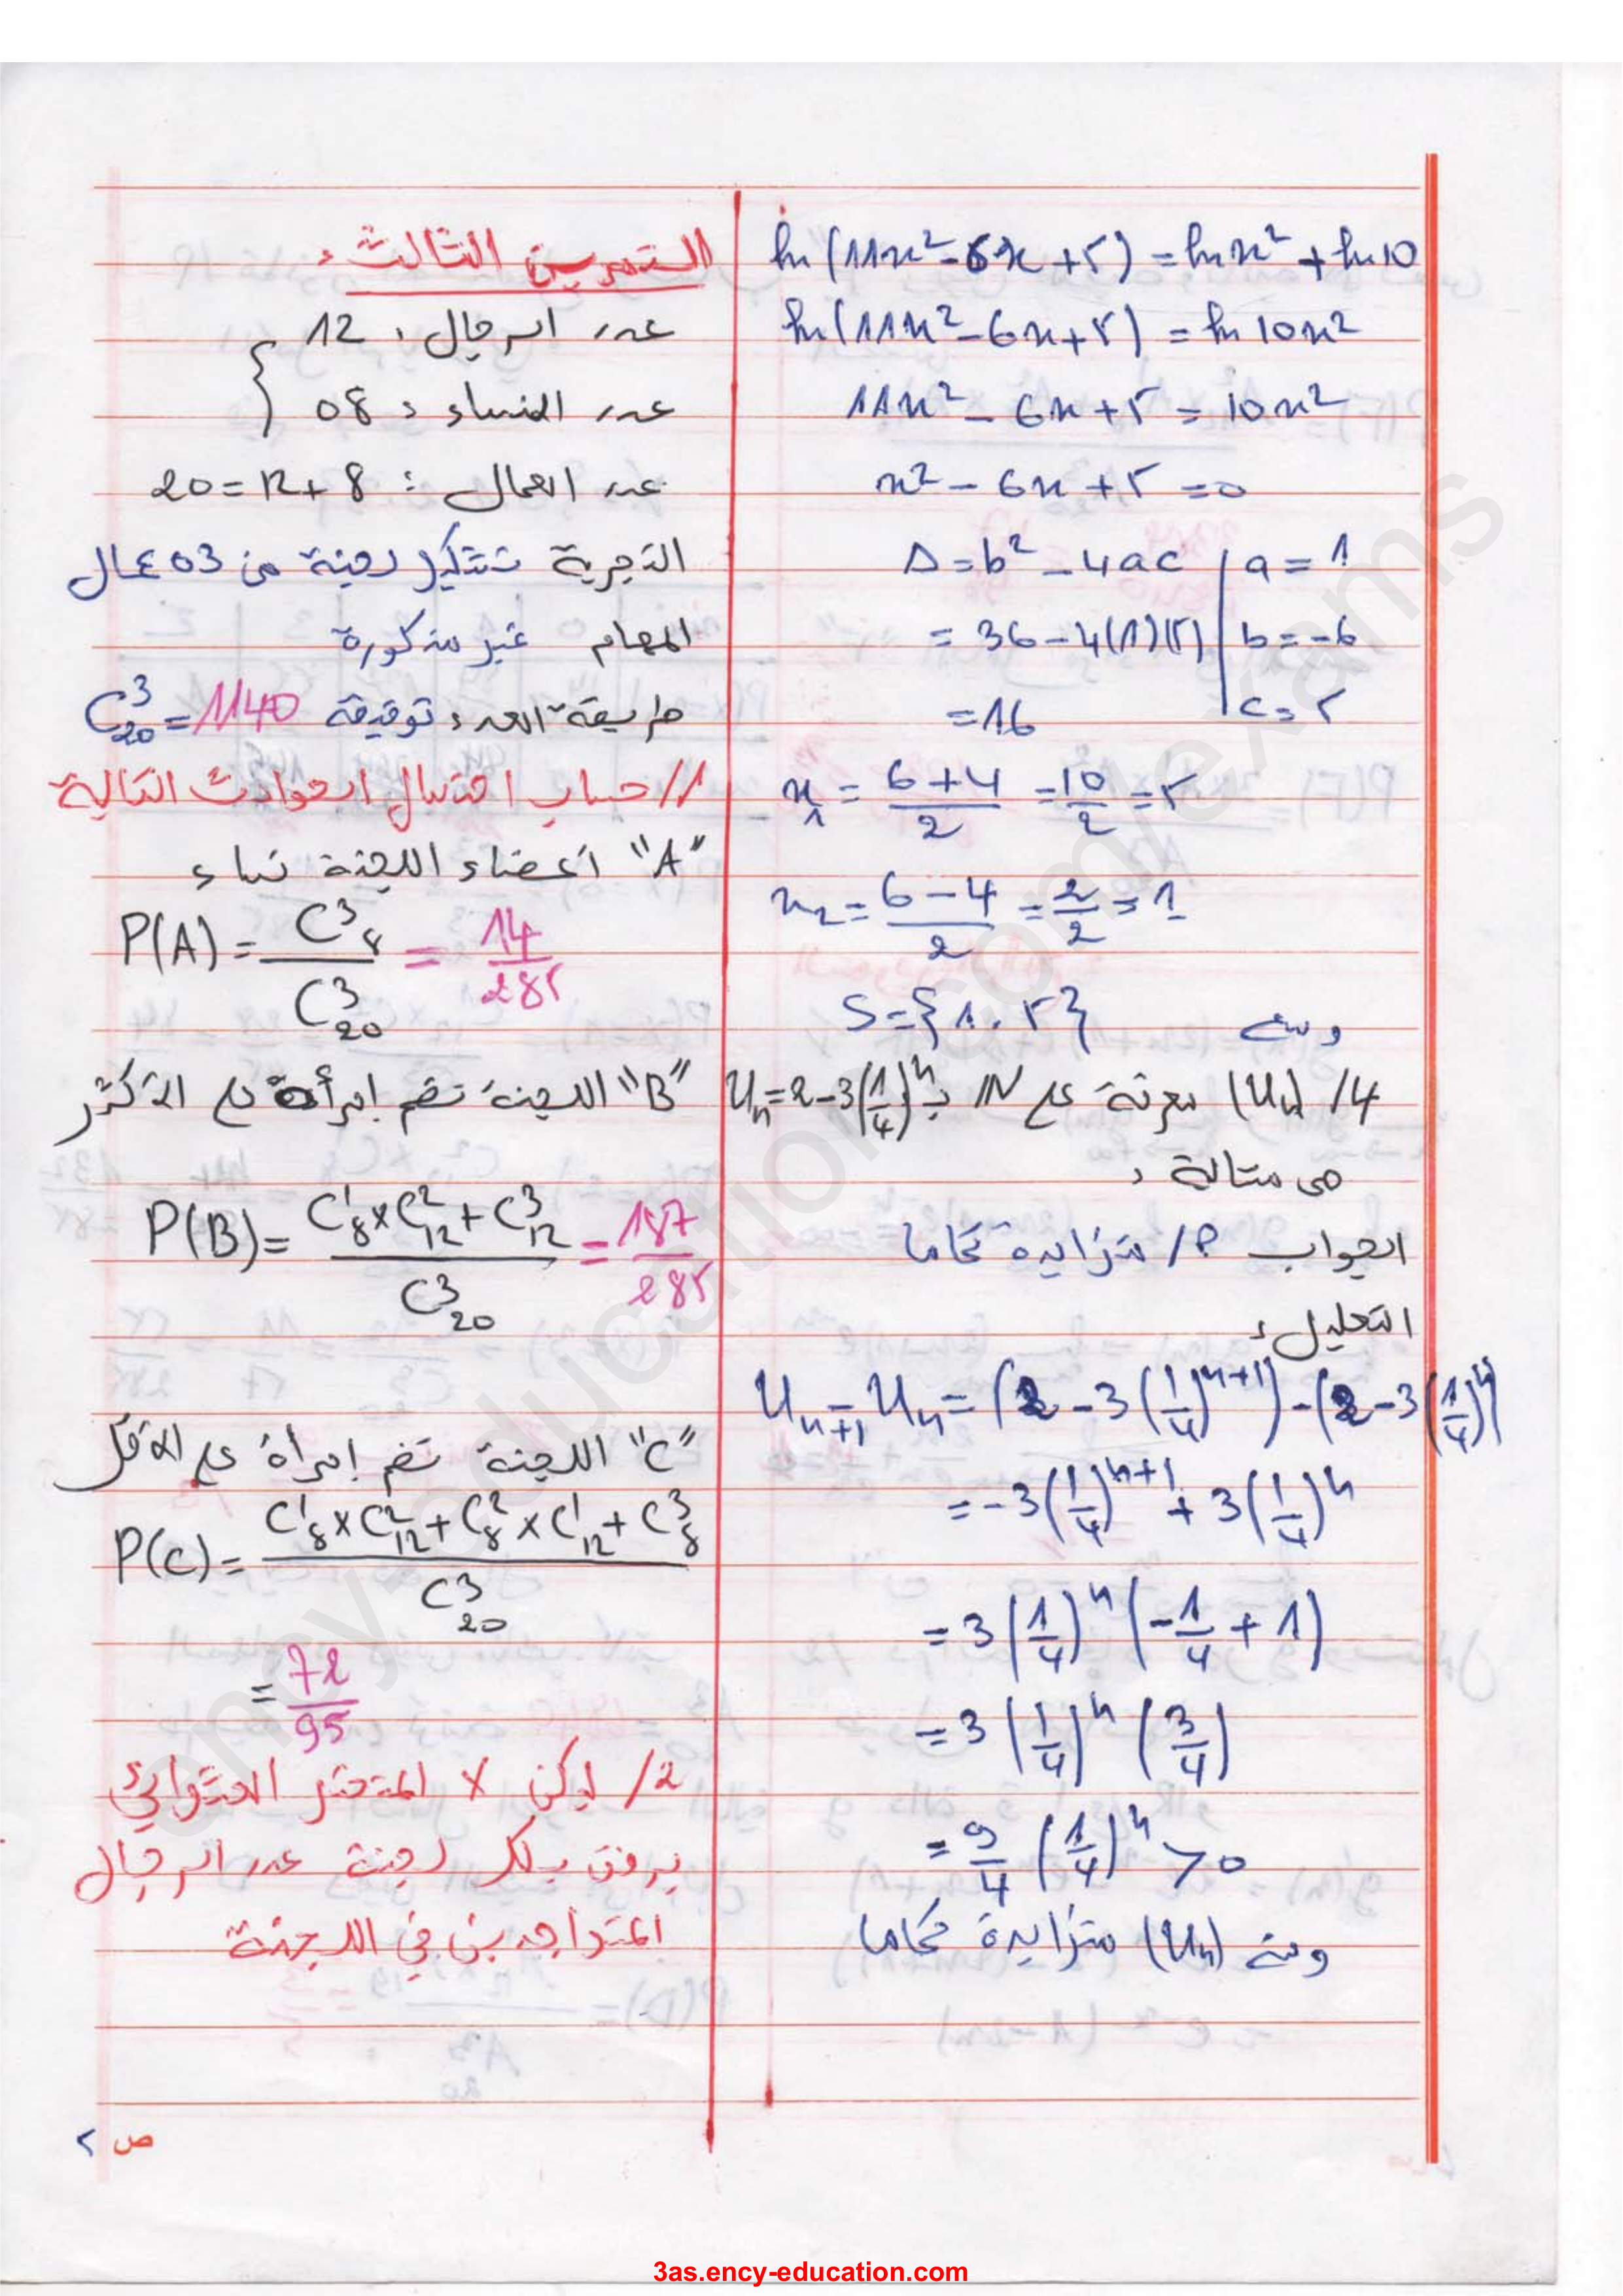 ln(11x² - 6x + 5) = ln x² + ln 10
ln(11x² - 6x + 5) = ln 10x²
11x² - 6x + 5 = 10x²
x² - 6x + 5 = 0
Δ = b² - 4ac | a = 1
= 36 - 4(1)(5) | b = -6
= 16 | c = 5
x₁ = (6+4)/2 = 10/2 = 5
x₂ = (6-4)/2 = 2/2 = 1
ومنه S = {1, 5}
4/ (Uₙ) معرفة على ℕ بـ Uₙ = 2 - 3(1/4)ⁿ
هي متتالية :
الجواب P/ متزايدة تماما
التعليل :
Uₙ₊₁ - Uₙ = (2 - 3(1/4)ⁿ⁺¹) - (2 - 3(1/4)ⁿ)
= -3(1/4)ⁿ⁺¹ + 3(1/4)ⁿ
= 3(1/4)ⁿ(-1/4 + 1)
= 3(1/4)ⁿ(3/4)
= 9/4 (1/4)ⁿ > 0
ومنه (Uₙ) متزايدة تماما
التمرين الثالث :
عدد الرجال : 12
عدد النساء : 08
عدد العمال : 20 = 12 + 8
التجربة تشكيل لجنة من 03 عمال
المهام غير مذكورة
طريقة العد : توفيقة C³₂₀ = 1140
1/ حساب احتمال الحوادث التالية
"A" أعضاء اللجنة نساء
P(A) = C³₈ / C³₂₀ = 14/285
"B" اللجنة تضم إمرأة على الأكثر
P(B) = (C¹₈ × C²₁₂ + C³₁₂) / C³₂₀ = 187/285
"C" اللجنة تضم إمرأة على الأقل
P(C) = (C¹₈ × C²₁₂ + C²₈ × C¹₁₂ + C³₈) / C³₂₀
= 72/95
2/ ليكن X المتغير العشوائي
يرفق بكل لجنة عدد الرجال
المتواجدين في اللجنة
ص 2
ency-education.com/exams
3as.ency-education.com